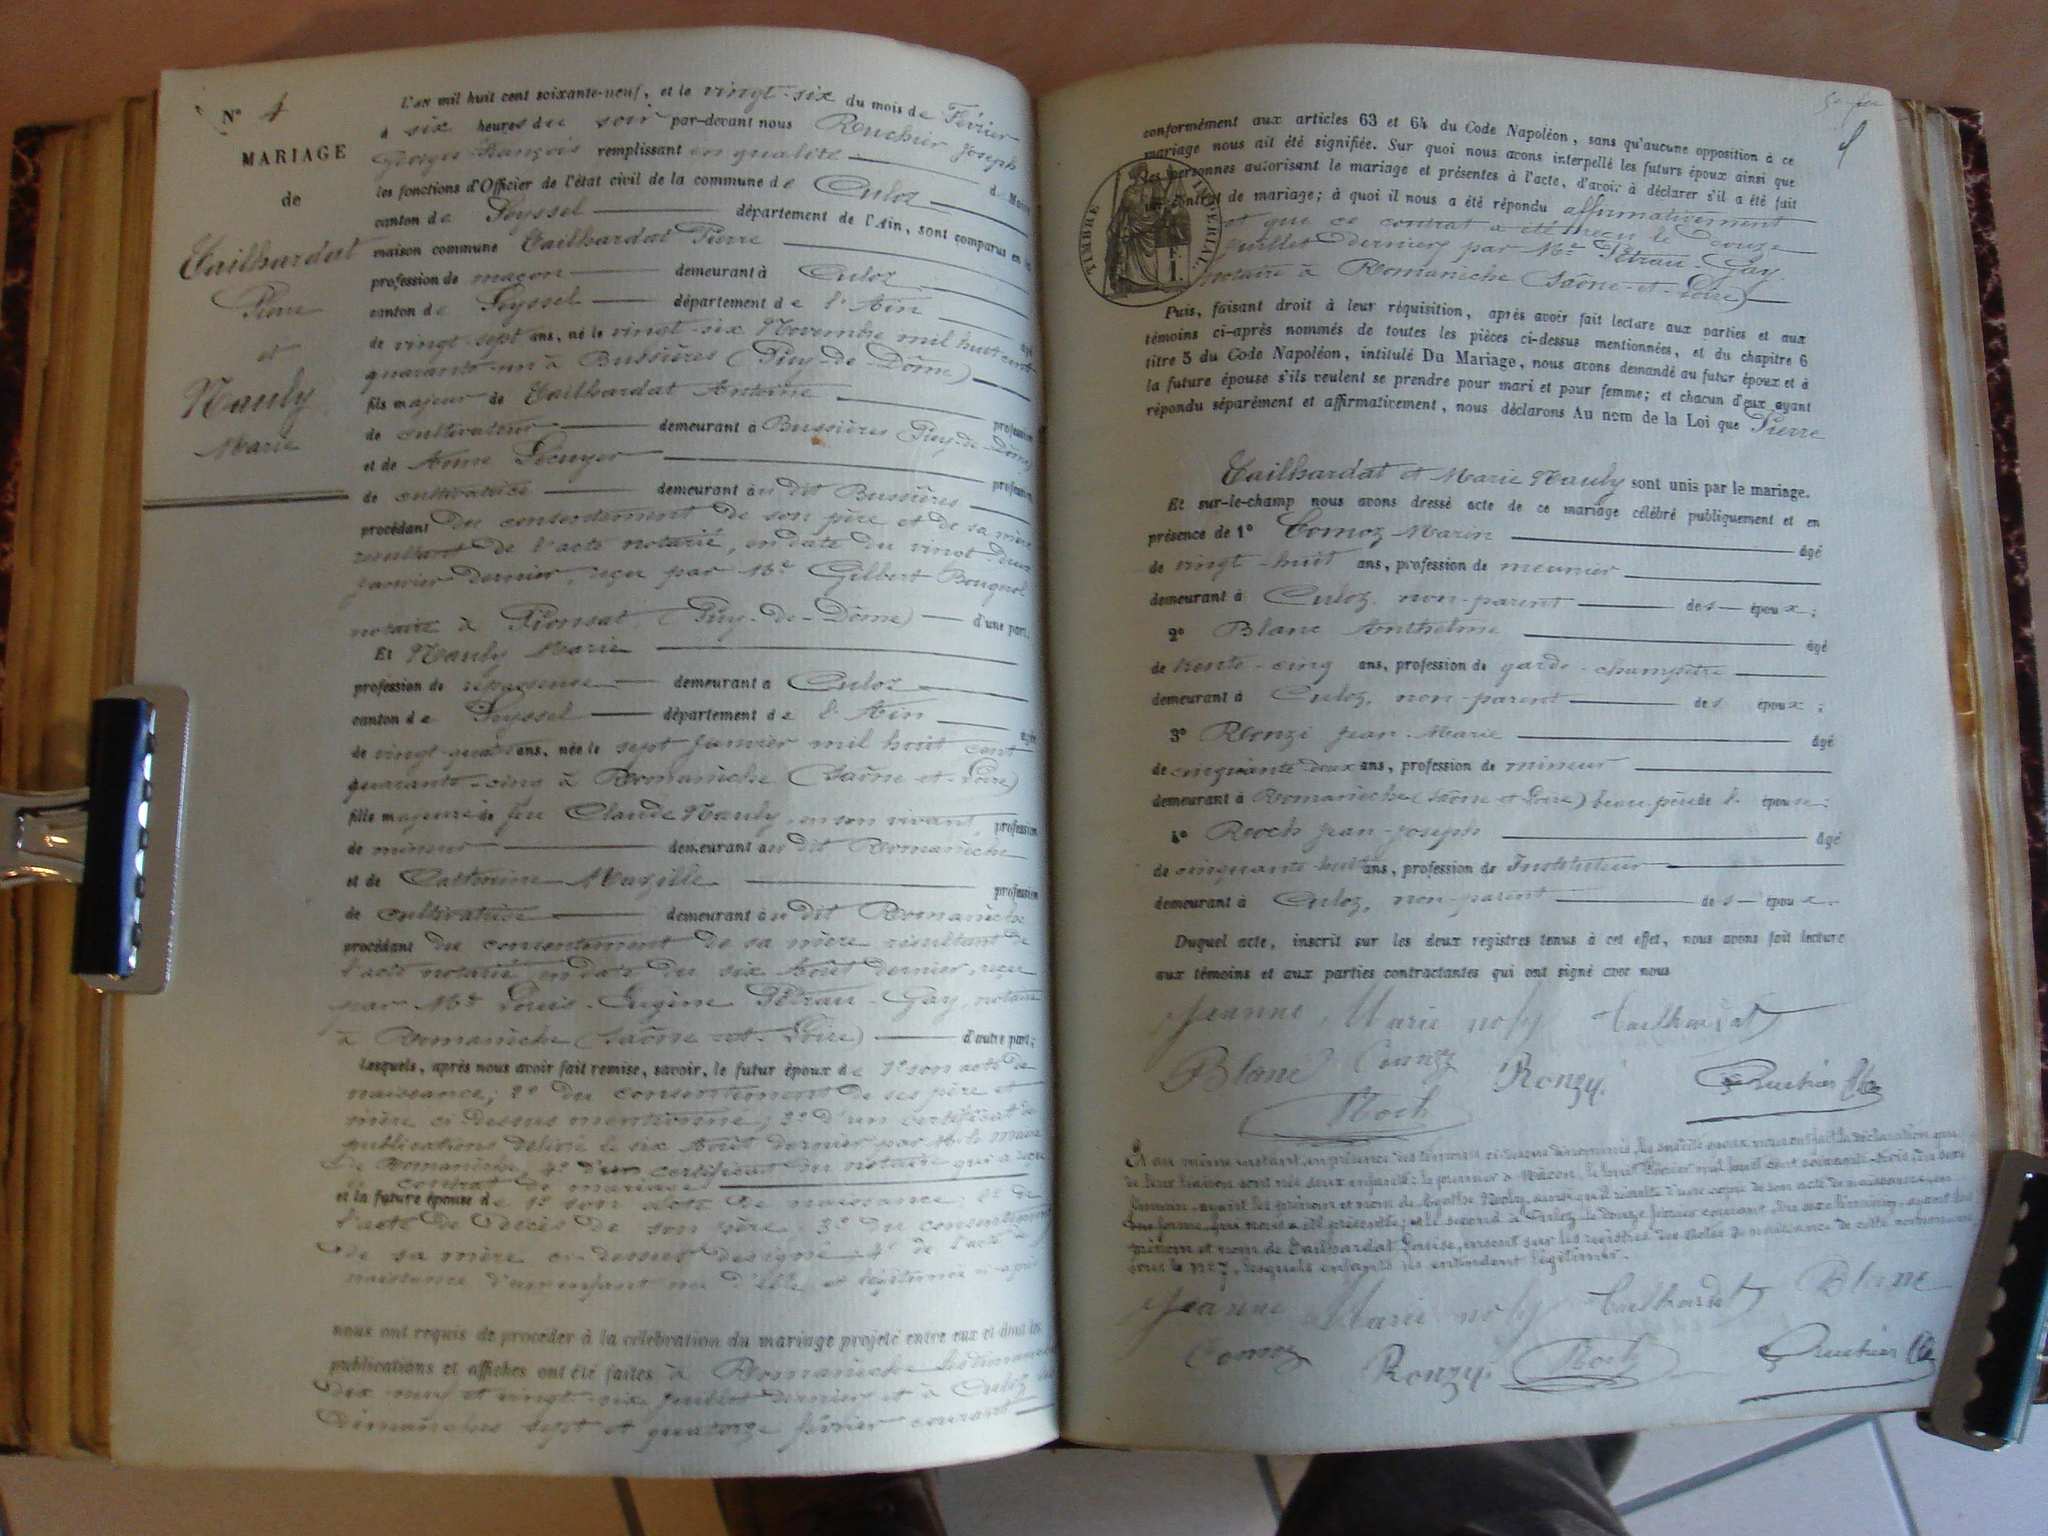 N° 4
MARIAGE
de
Tailhardat
Pierre
et
Nauly
Marie
L'an mil huit cent soixante-neuf, et le vingt-six du mois de Février
à six heures du soir par-devant nous Joseph
Georges François remplissant en qualité de Maire
les fonctions d'Officier de l'état civil de la commune de Culoz
canton de Seyssel département de l'Ain, sont comparus en la
maison commune Tailhardat Pierre
profession de maçon demeurant à Culoz
canton de Seyssel département de l'Ain âgé
de vingt-sept ans, né le vingt-six Novembre mil huit cent
quarante-un à Bussières (Puy-de-Dôme)
fils majeur de Tailhardat Antoine profession
de cultivateur demeurant à Bussières (Puy-de-Dôme)
et de Anne Lecuyer profession
de cultivatrice demeurant au dit Bussières
procédant du consentement de son père et de sa mère
résultant de l'acte notarié, en date du vingt-deux
janvier dernier, reçu par Me Gilbert
notaire à Pionsat (Puy-de-Dôme) d'une part,
Et Nauly Marie
profession de repasseuse demeurant à Culoz
canton de Seyssel département de l'Ain âgée
de vingt-quatre ans, née le sept Janvier mil huit cent
quarante-cinq à Romanèche (Saône-et-Loire)
fille majeure de feu Claude Nauly, en son vivant, profession
de mineur demeurant au dit Romanèche
et de Catherine Mazille profession
de cultivatrice demeurant au dit Romanèche
procédant du consentement de sa mère résultant de
l'acte notarié en date du six Août dernier, reçu
par Me Louis-Eugène Pétrau-Gay, notaire
à Romanèche (Saône-et-Loire) d'autre part;
Lesquels, après nous avoir fait remise, savoir, le futur époux de 1° son acte de
naissance; 2° du consentement de ses père et
mère ci-dessus mentionné; 3° d'un certificat de
publications délivré le six Août dernier par M. le maire
de Romanèche, 4° d'un certificat du notaire qui a reçu
le contrat de mariage
et la future épouse de 1° son acte de naissance; 2° de
l'acte de décès de son père; 3° du consentement
de sa mère ci-dessus désigné; 4° de l'acte de
naissance d'un enfant né d'elle, et légitimé ci-après
nous ont requis de procéder à la célébration du mariage projeté entre eux et dont les
publications et affiches ont été faites à Romanèche les dimanches
dix-neuf et vingt-six juillet dernier, et à Culoz les
dimanches sept et quatorze février courant
conformément aux articles 63 et 64 du Code Napoléon, sans qu'aucune opposition à ce
mariage nous ait été signifiée. Sur quoi nous avons interpellé les futurs époux ainsi que
les personnes autorisant le mariage et présentes à l'acte, d'avoir à déclarer s'il a été fait
un contrat de mariage; à quoi il nous a été répondu affirmativement
et que ce contrat a été reçu le douze
juillet dernier, par Me Pétrau Gay
notaire à Romanèche (Saône-et-Loire)
TIMBRE IMPERIAL
1 F
Puis, faisant droit à leur réquisition, après avoir fait lecture aux parties et aux
témoins ci-après nommés de toutes les pièces ci-dessus mentionnées, et du chapitre 6
titre 5 du Code Napoléon, intitulé Du Mariage, nous avons demandé au futur époux et à
la future épouse s'ils veulent se prendre pour mari et pour femme; et chacun d'eux ayant
répondu séparément et affirmativement, nous déclarons Au nom de la Loi que Pierre
Tailhardat et Marie Nauly sont unis par le mariage.
Et sur-le-champ nous avons dressé acte de ce mariage célébré publiquement et en
présence de 1° Comoz Marin âgé
de vingt-huit ans, profession de meunier
demeurant à Culoz, non-parent des époux;
2° Blanc Anthelme âgé
de trente-cinq ans, profession de garde-champêtre
demeurant à Culoz, non-parent des époux;
3° Ronzi Jean-Marie âgé
de cinquante-deux ans, profession de mineur
demeurant à Romanèche (Saône et Loire) beau-père de l'épouse;
4° Roch Jean-Joseph âgé
de cinquante-huit ans, profession de Instituteur
demeurant à Culoz, non-parent des époux.
Duquel acte, inscrit sur les deux registres tenus à cet effet, nous avons fait lecture
aux témoins et aux parties contractantes qui ont signé avec nous
Jeanne Marie noly Tailhardat
Blanc Comoz Ronzy
Roch
Et au même instant, en présence des témoins ci-dessus dénommés, les susdits époux nous ont fait la déclaration que
de leur liaison sont nés deux enfants: le premier à Mâcon, le huit Février mil huit cent soixante-trois, du sexe
féminin, ayant les prénom et nom de Agathe Noly, ainsi qu'il résulte d'une copie de son acte de naissance, en
due forme, qui nous a été présentée; et le second à Culoz, le douze février courant, du sexe féminin, ayant les
prénom et nom de Tailhardat Louise, inscrit sur les registres des actes de naissance de cette commune
sous le n° 7, lesquels enfants ils entendent légitimer.
Jeanne Marie noly Tailhardat Blanc
Comoz Ronzy Roch